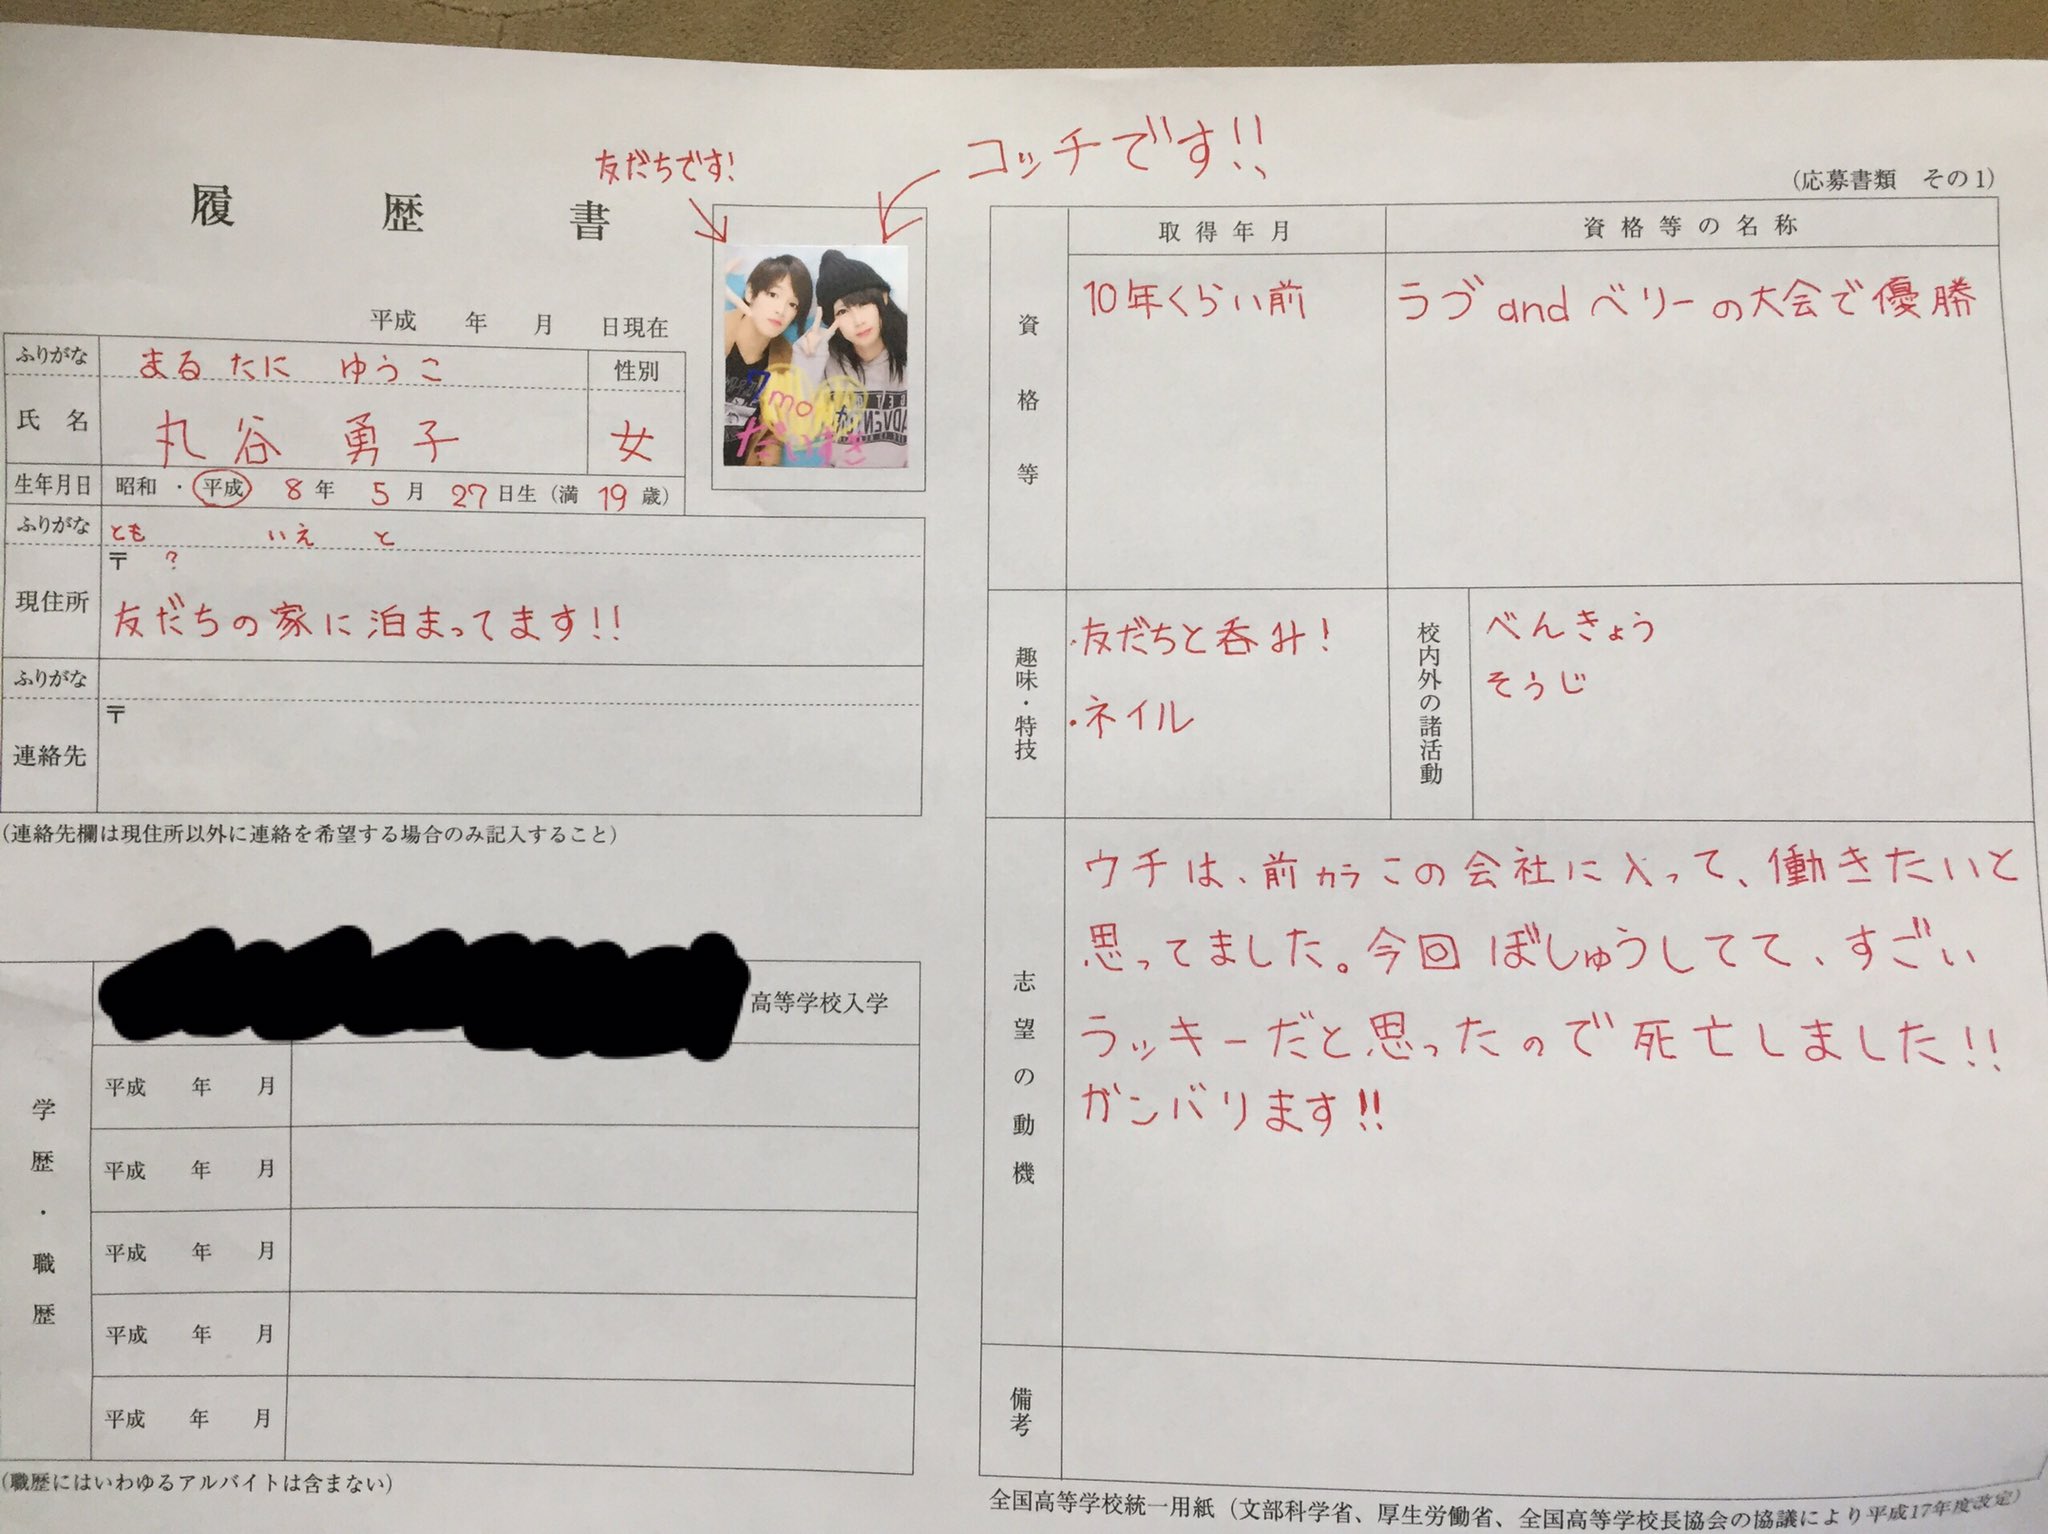 友だちです!
コッチです!!
履歴書
(応募書類 その1)
平成 年 月 日現在
ふりがな まるたに ゆうこ 性別
氏名 丸谷 勇子 女
生年月日 昭和・平成 8年 5月 27日生(満 19歳)
ふりがな とも いえ と
現住所 〒 ?
友だちの家に泊まってます!!
ふりがな
連絡先 〒
(連絡先欄は現住所以外に連絡を希望する場合のみ記入すること)
mo
だいすき
学歴・職歴
高等学校入学
平成 年 月
平成 年 月
平成 年 月
平成 年 月
平成 年 月
(職歴にはいわゆるアルバイトは含まない)
資格等 取得年月 資格等の名称
10年くらい前 ラブandベリーの大会で優勝
趣味・特技
・友だちと呑み!
・ネイル
校内外の諸活動
べんきょう
そうじ
志望の動機
ウチは、前カラこの会社に入って、働きたいと
思ってました。今回ぼしゅうしてて、すごい
ラッキーだと思ったので死亡しました!!
ガンバリます!!
備考
全国高等学校統一用紙(文部科学省、厚生労働省、全国高等学校長協会の協議により平成17年度改定)